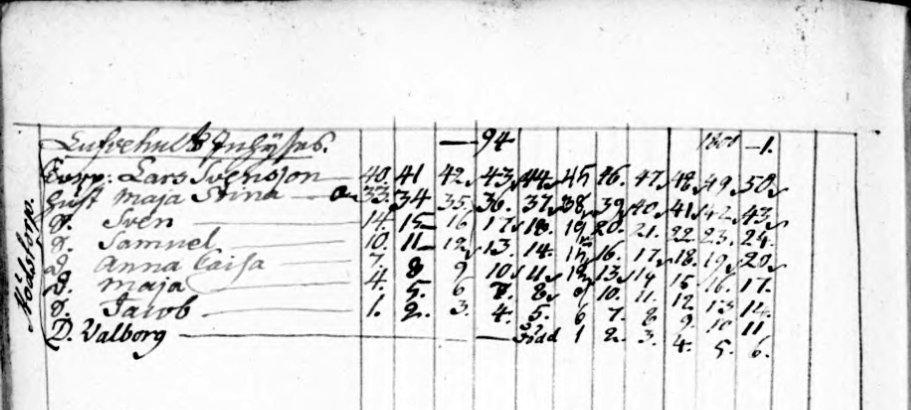 Inhyses. — 94 1800 — 1.
Corp: Lars Svensson — 40. 41 42. 43. 44. 45 46. 47. 48. 49. 50.
Hust Maja Stina — 33. 34 35. 36. 37. 38. 39. 40. 41. 42. 43.
S. Sven — 14. 15 16 17. 18. 19. 20. 21. 22. 23. 24.
S. Samuel — 10. 11 12. 13. 14. 15. 16. 17. 18. 19. 20.
D Anna Caisa — 7. 8 9 10. 11. 12. 13. 14 15 16. 17.
D. Maja — 4. 5. 6 7. 8. 9. 10. 11. 12 13 14.
S. Jacob — 1. 2. 3. 4. 5. 6 7. 8 9. 10 11
D. Valborg — 1 2. 3. 4. 5. 6.